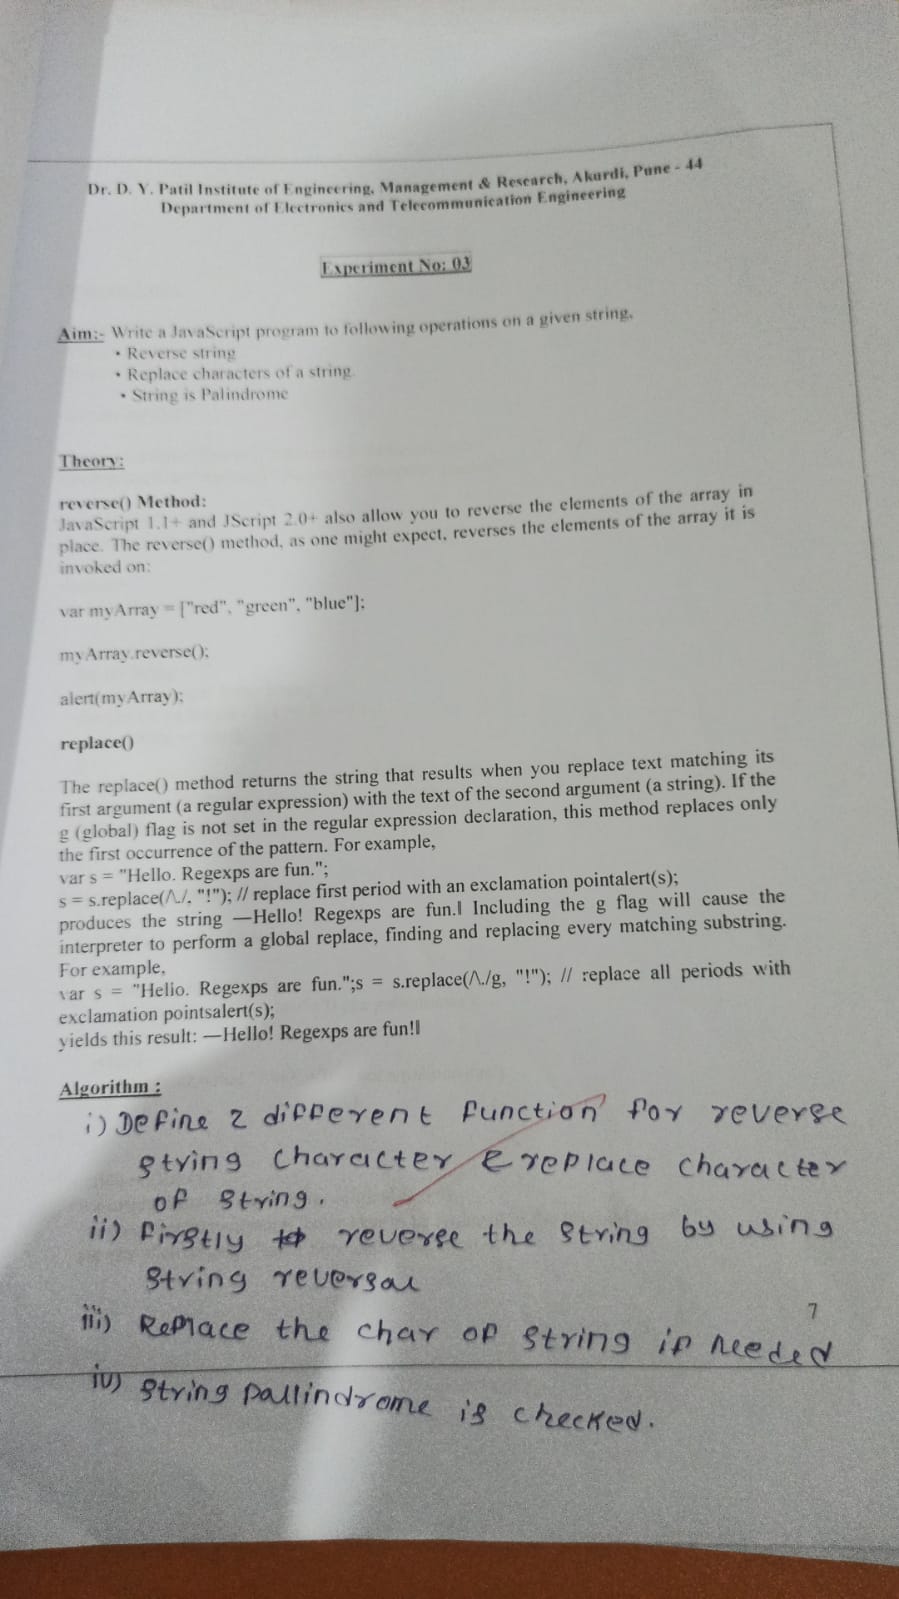 Dr. D. Y. Patil Institute of Engineering, Management & Research, Akurdi, Pune - 44
Department of Electronics and Telecommunication Engineering
Experiment No: 03
Aim:- Write a JavaScript program to following operations on a given string.
• Reverse string
• Replace characters of a string.
• String is Palindrome
Theory:
reverse() Method:
JavaScript 1.1+ and JScript 2.0+ also allow you to reverse the elements of the array in
place. The reverse() method, as one might expect, reverses the elements of the array it is
invoked on:
var myArray = ["red", "green", "blue"];
myArray.reverse();
alert(myArray);
replace()
The replace() method returns the string that results when you replace text matching its
first argument (a regular expression) with the text of the second argument (a string). If the
g (global) flag is not set in the regular expression declaration, this method replaces only
the first occurrence of the pattern. For example,
var s = "Hello. Regexps are fun.";
s = s.replace(/\./, "!"); // replace first period with an exclamation pointalert(s);
produces the string ―Hello! Regexps are fun.‖ Including the g flag will cause the
interpreter to perform a global replace, finding and replacing every matching substring.
For example,
var s = "Hello. Regexps are fun.";s = s.replace(/\./g, "!"); // replace all periods with
exclamation pointsalert(s);
yields this result: ―Hello! Regexps are fun!‖
Algorithm :
i) Define 2 different function for reverse
string character & replace character
of string.
ii) firstly reverse the string by using
string reversal
7
iii) Replace the char of string if needed
iv) string pallindrome is checked.